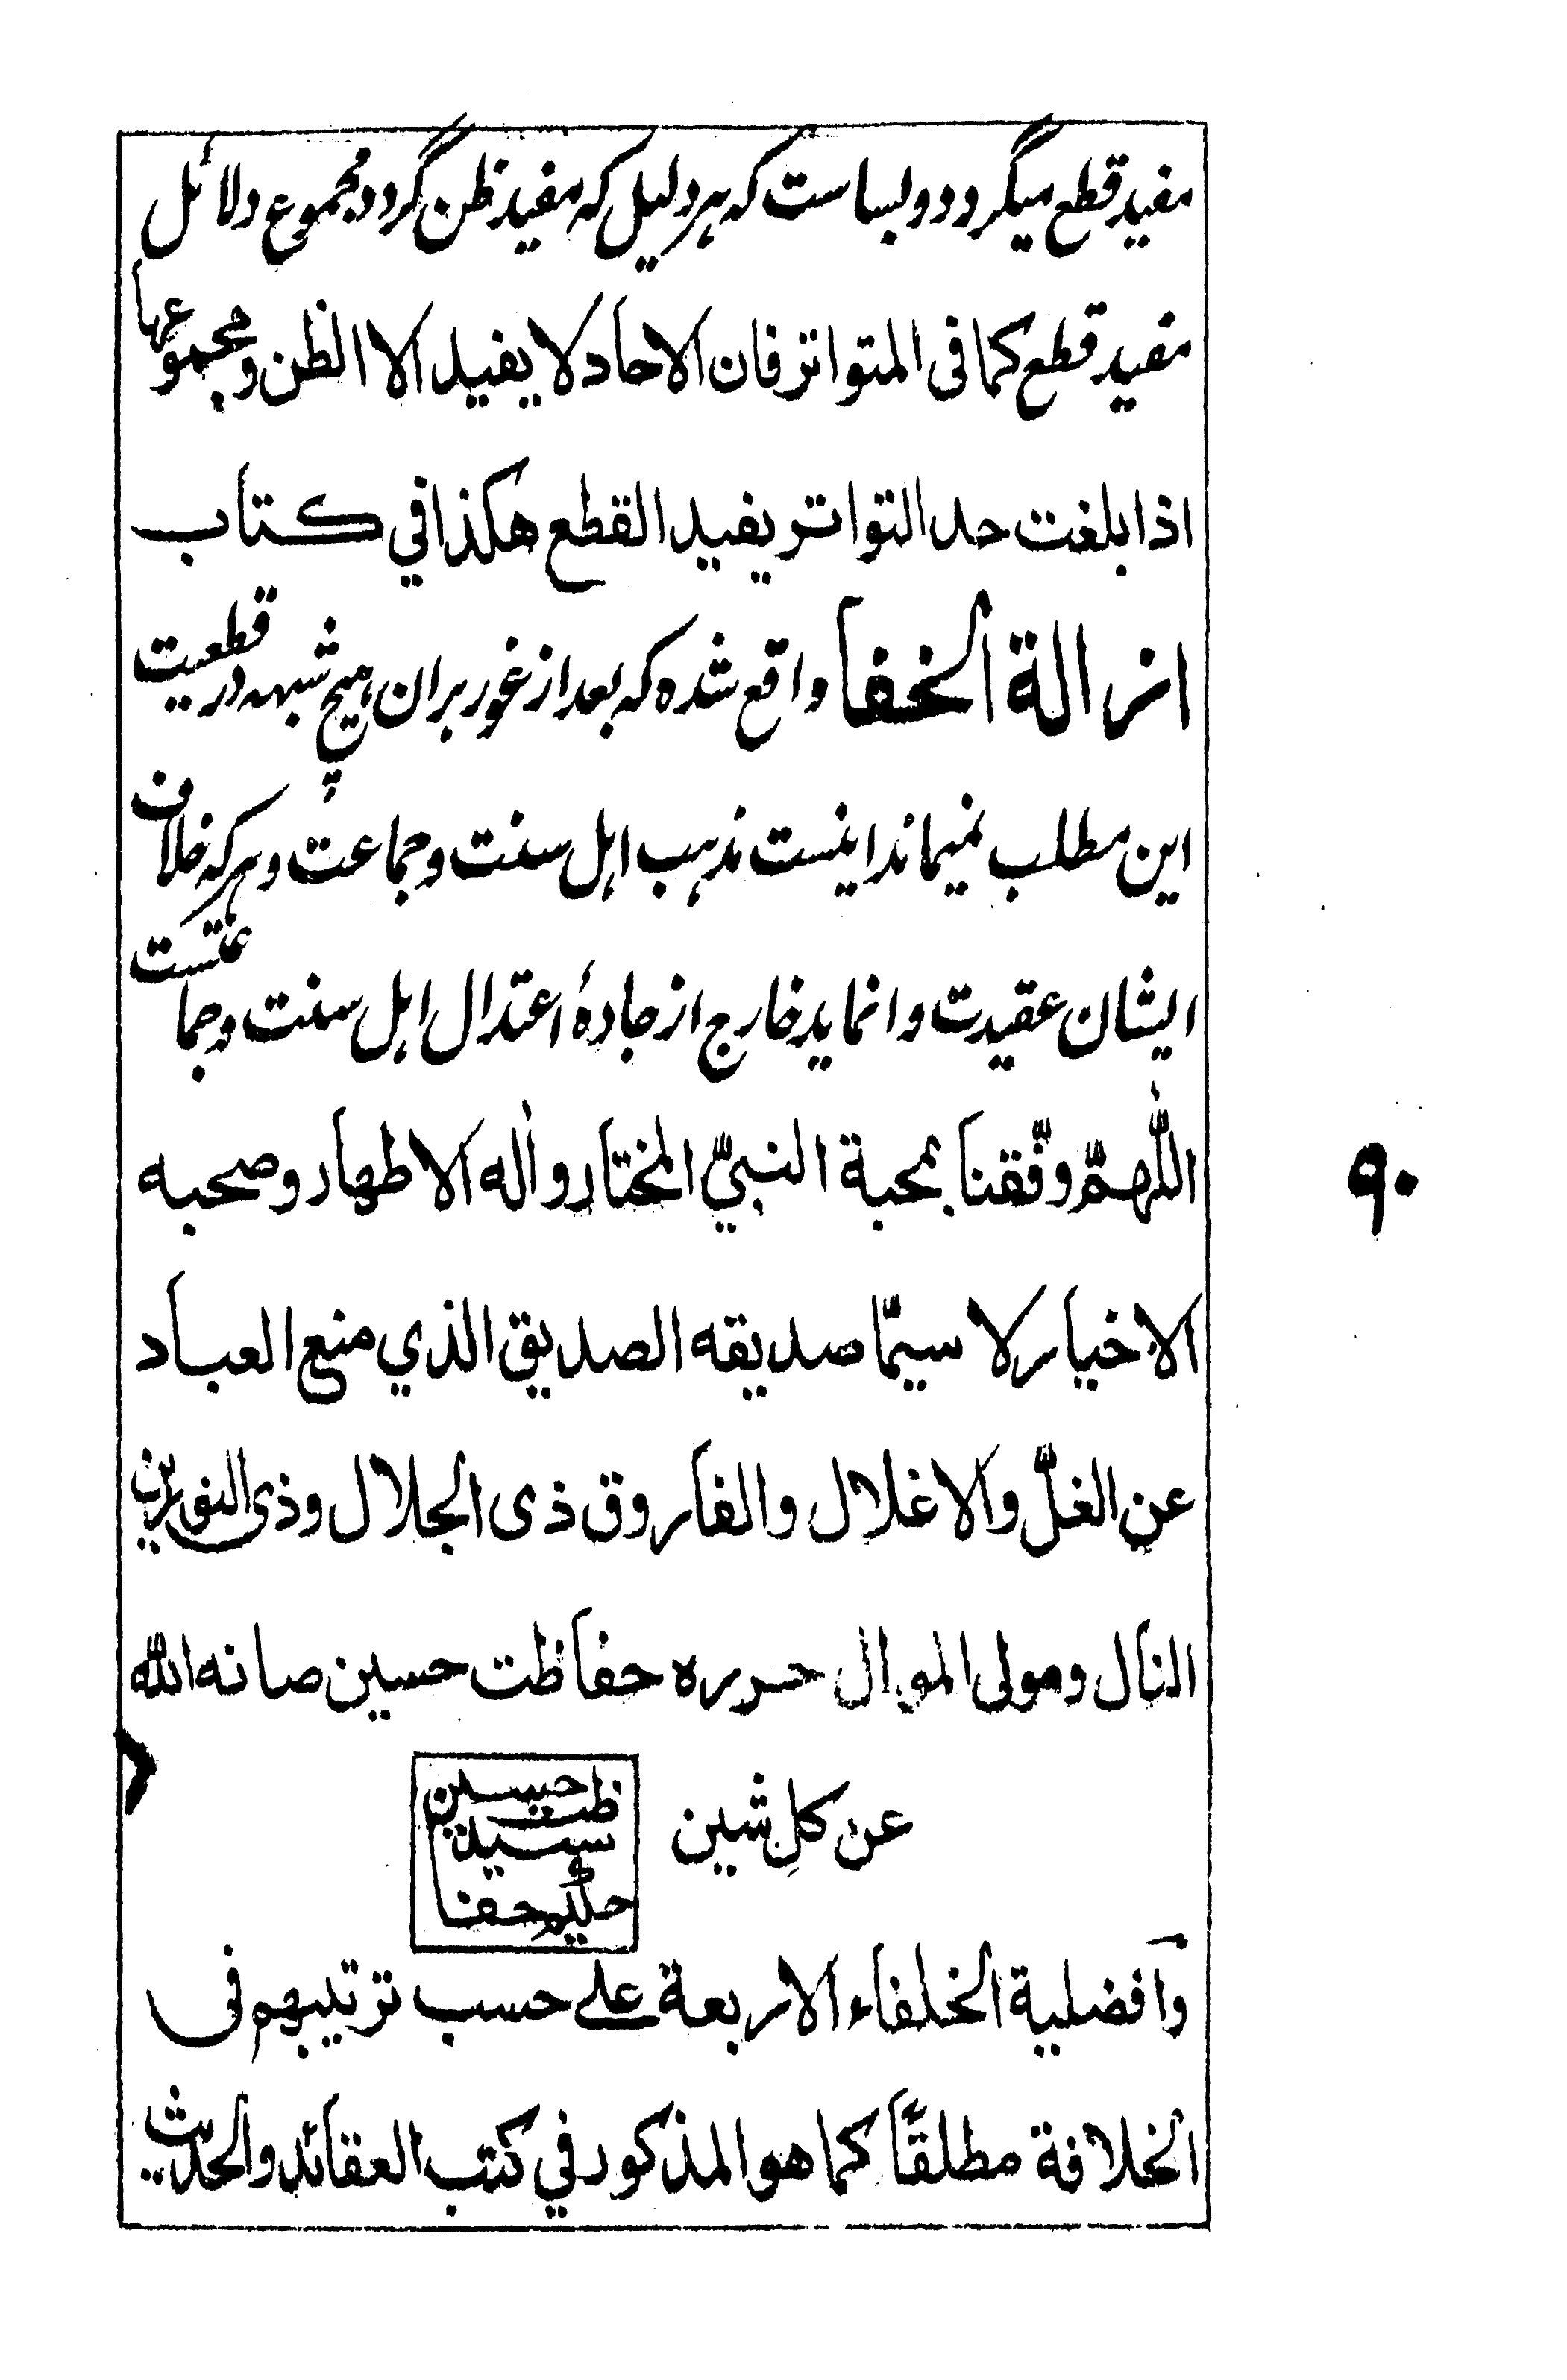 مفید قطع میگردد و بسا ست که هر دلیل که مفید ظن گردد مجموع دلائل
مفید قطع کما فی المتواتر فان الاحاد لا یفید الا الظن و مجموعها
اذا بلغت حد التواتر یفید القطع هکذا في کتاب
ازالة الخفا واقع شده که بعد از غور بران هیچ شبهه در قطعیت
این مطلب نمیماند اینست مذهب اهل سنت و جماعت و هرکه خلاف
ایشان عقیدت وا نماید خارج از جادهٔ اعتدال اهل سنت و جماعتست
اللّٰهمّ وفّقنا بمحبة النبيّ المختار واٰله الاطهار وصحبه
الاخیار لا سیمّا صدیقه الصدیق الذي منع العباد
عن الغلّ والاغلال والفاروق ذی الجلال وذی النورین
النال ومولی الموال حرره حفاظت حسین صانه الله
عن کلِ شین
حسین
ظت
سید
حفا
وافضلیة الخلفاء الاربعة علے حسب ترتیبهم فی
الخلافة مطلقًا کما هو المذکور في کتب العقائد والحدیث
۹۰